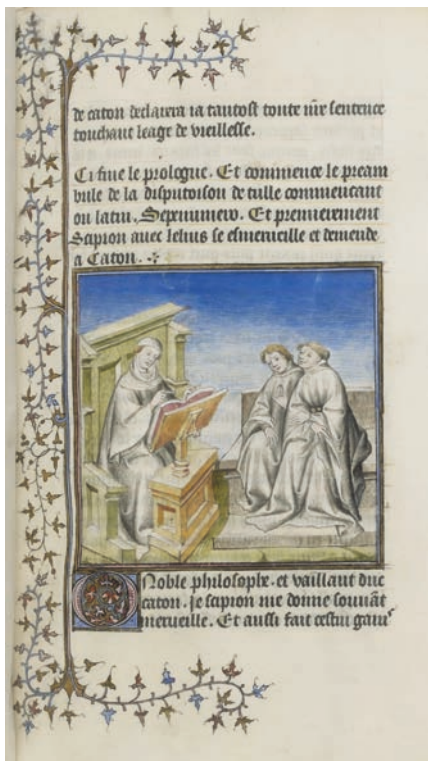 de caton declairera ia tantost toute nr̃e sentence
touchant leage de vieillesse.
Ci fine le prologue. Et commence le pream
bule de la disputoison de tulle commencant
ou latin, Sepenumero. Et premierement
Scipion auec lelius se esmerueille et demande
a Caton.
O Noble philosophe. et vaillant duc
caton. Je scipion me donne souuãt
merueille. Et aussi fait cestui